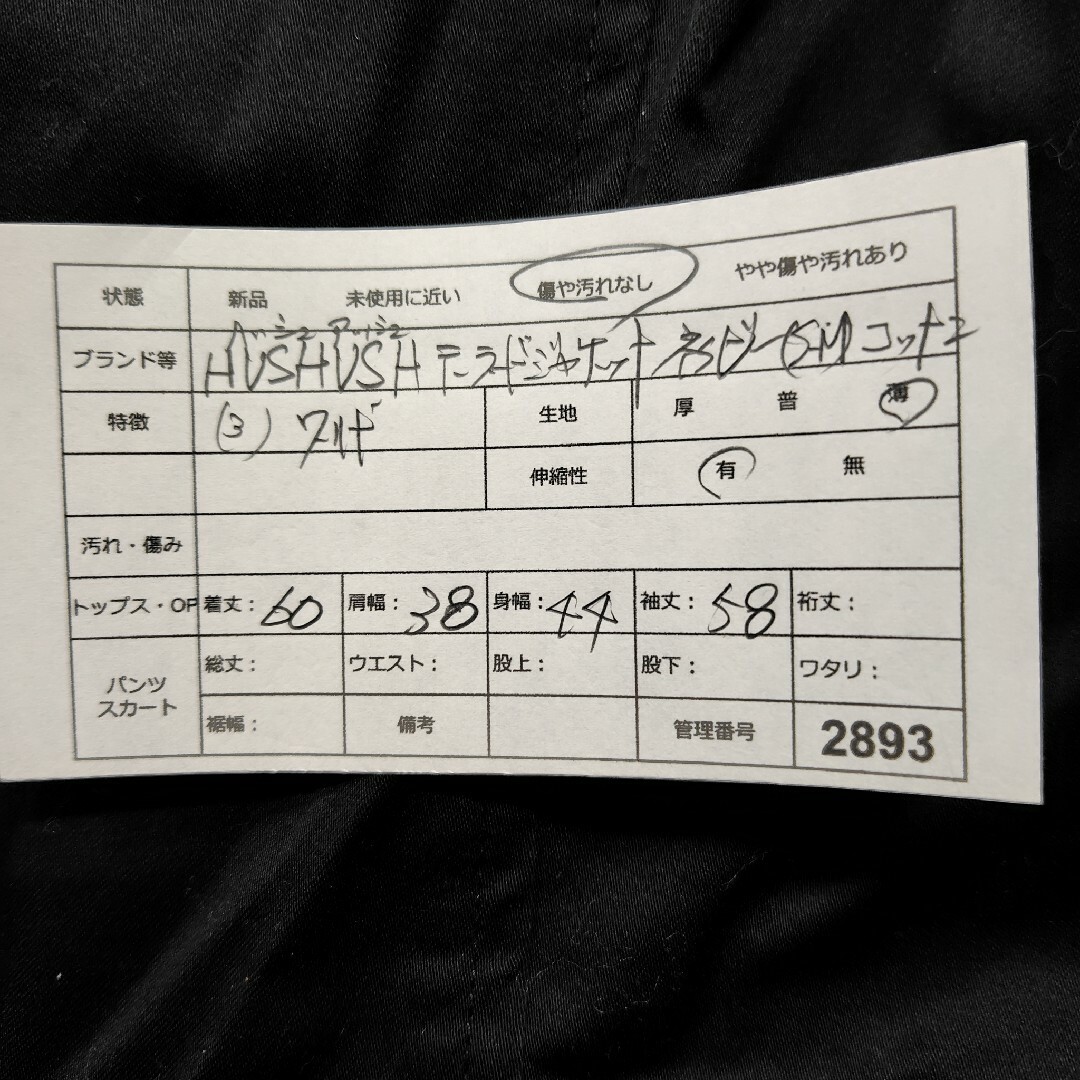 状態 新品 未使用に近い 傷や汚れなし やや傷や汚れあり
ブランド等 HUSHUSH テーラードジャケット ネイビー(S-M) コットン
特徴 (3) 生地 厚 普 薄
伸縮性 有 無
汚れ・傷み
トップス・OP 着丈: 60 肩幅: 38 身幅: 44 袖丈: 58 裄丈:
パンツ スカート 総丈: ウエスト: 股上: 股下: ワタリ:
裾幅: 備考 管理番号 2893